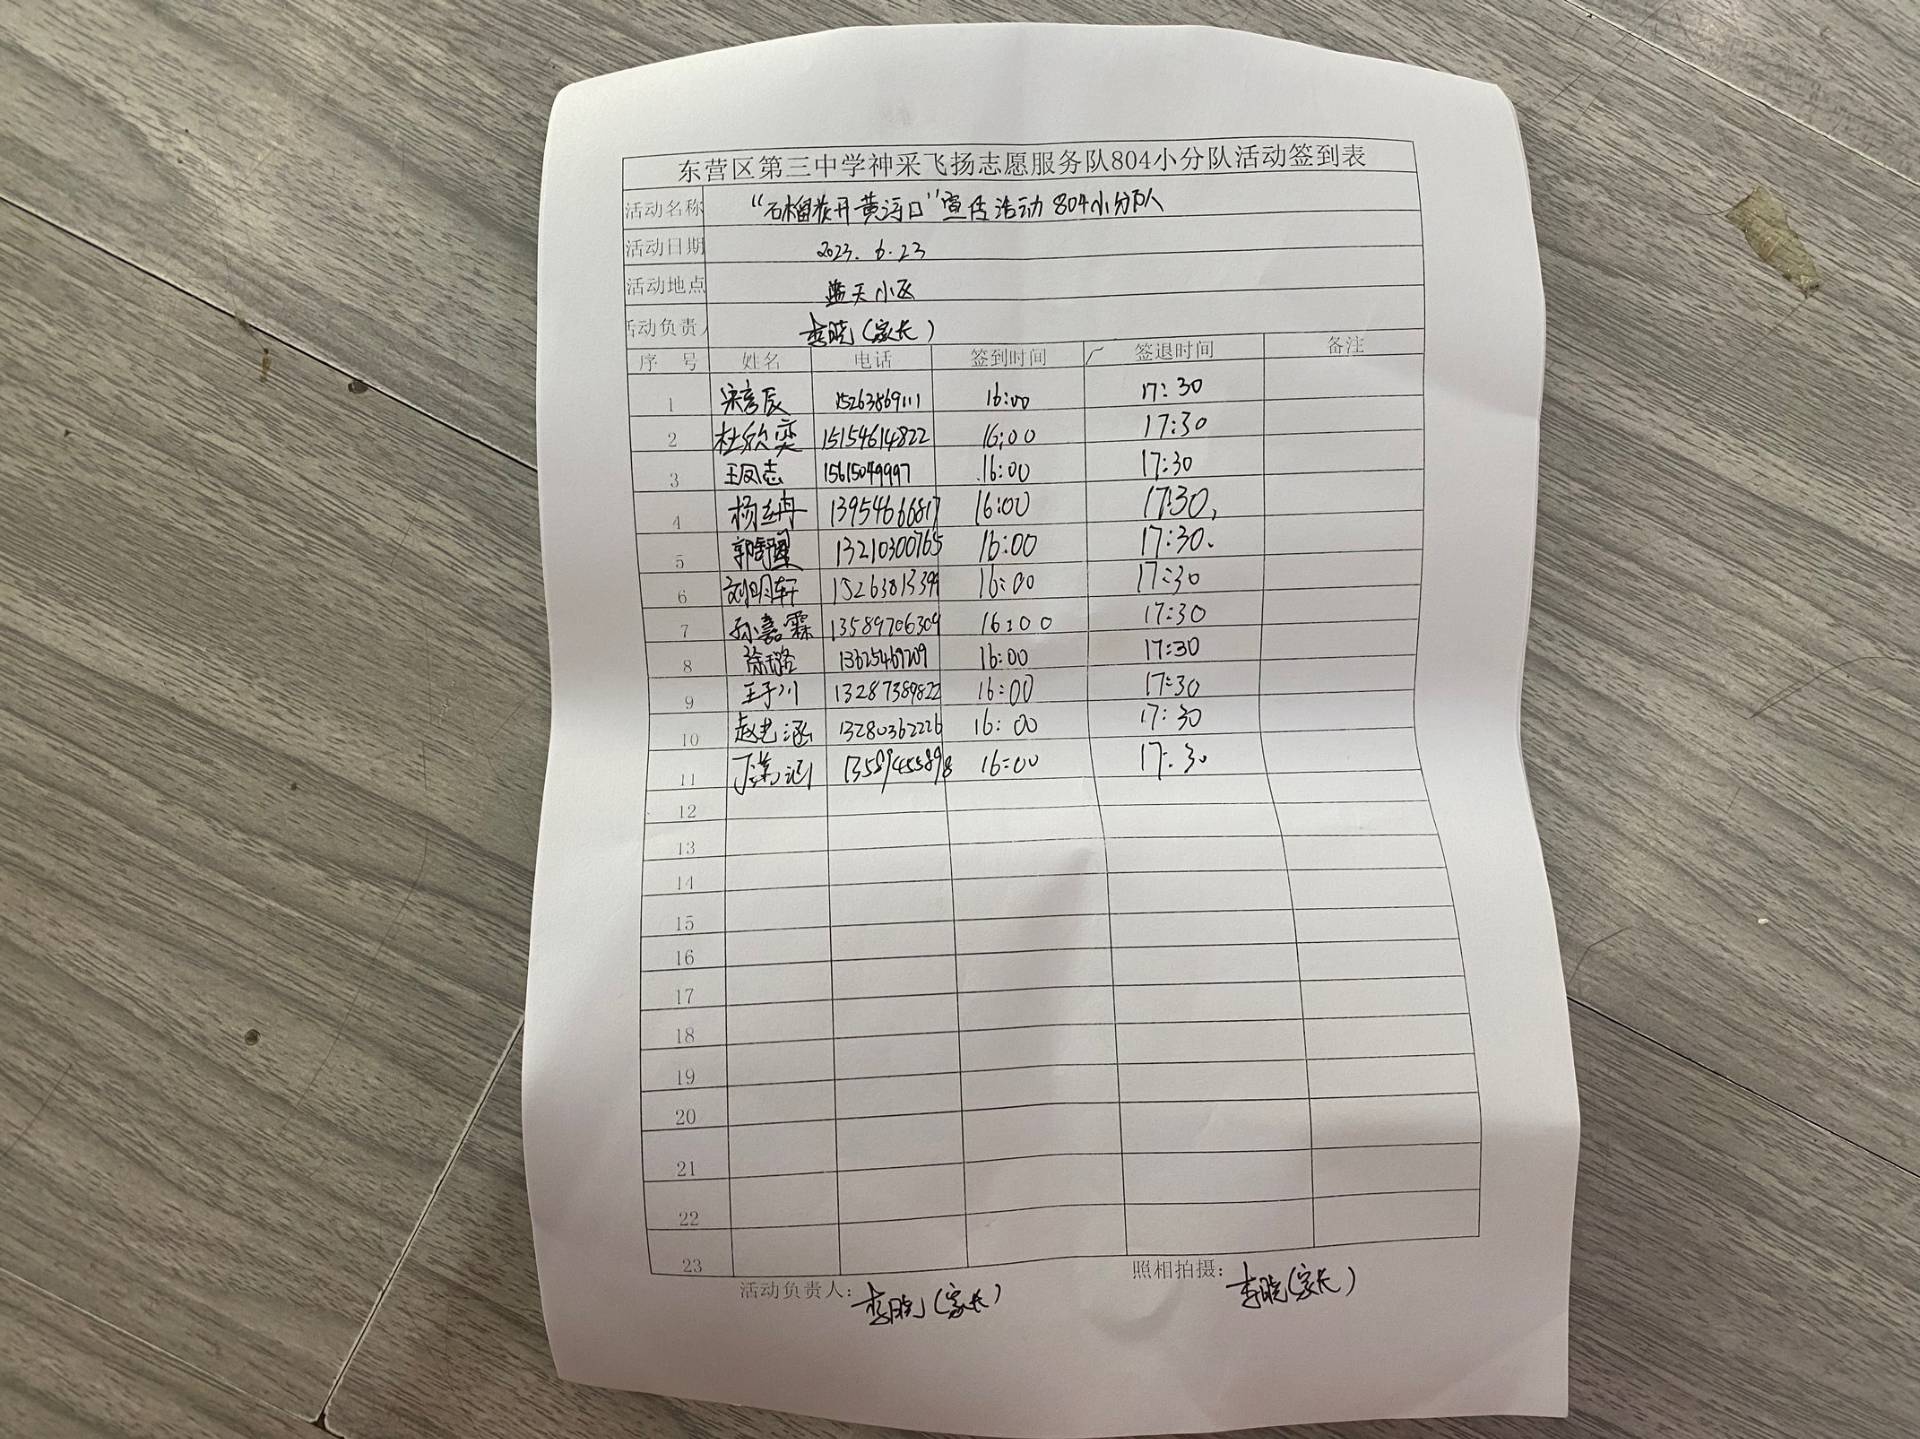 东营区第三中学神采飞扬志愿服务队804小分队活动签到表
活动名称 “石榴花开黄河口”宣传活动 804小分队
活动日期 2023.6.23
活动地点 蓝天小区
活动负责人 李晓（家长）
序号 姓名 电话 签到时间 签退时间 备注
1 宋彦辰 15263869111 16:00 17:30
2 杜欣奕 15154614822 16:00 17:30
3 王凤志 15615049997 16:00 17:30
4 13954666817 16:00 17:30
5 13210300765 16:00 17:30
6 刘明轩 16:00 17:30
7 孙嘉霖 13589706309 16:00 17:30
8 徐璐 16:00 17:30
9 王子川 13287389822 16:00 17:30
10 赵艺涵 13280362226 16:00 17:30
11 16:00 17:30
12
13
14
15
16
17
18
19
20
21
22
23
活动负责人：李晓（家长） 照相拍摄：李晓（家长）